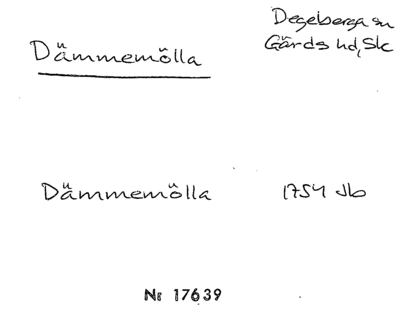 Dämmemölla
Degeberga sn
Gärds hd, Sk
Dämmemölla 1754 Jb
Nr 17639